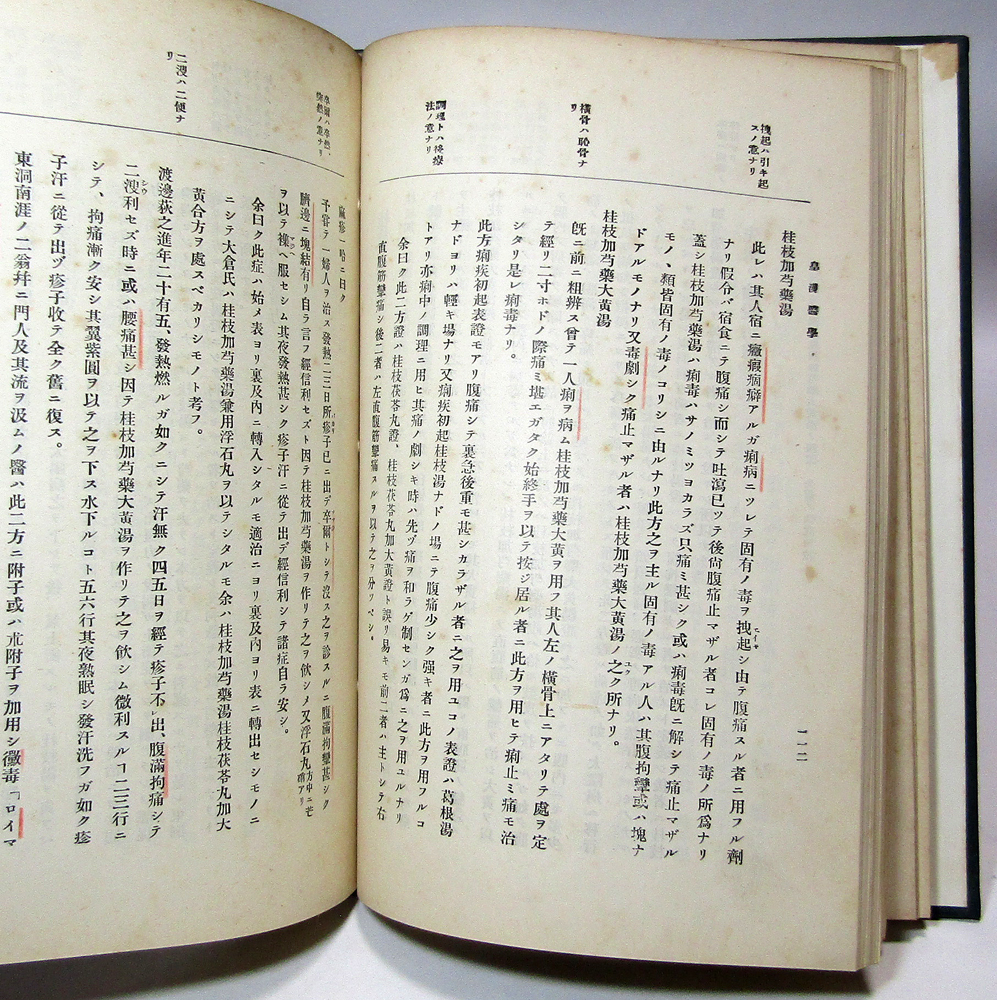 皇漢醫學
一一二
拽起ハ引キ起
スノ意ナリ
橫骨ハ恥骨ナ
リ
調理トハ療
法ノ意ナリ
桂枝加芍藥湯
此レハ其人宿ニ癥瘕痼癖アルガ痢病ニツレテ固有ノ毒ヲ拽起シ由テ腹痛スル者ニ用フル劑
ナリ假令バ宿食ニテ腹痛シ而シテ吐瀉已ッテ後尙腹痛止マザル者コレ固有ノ毒ノ所爲ナリ
蓋シ桂枝加芍藥湯ハ痢毒ハサノミツヨカラズ只痛ミ甚シク或ハ痢毒旣ニ解シテ痛止マザル
モノ、類皆固有ノ毒ノコリシニ由ルナリ此方之ヲ主ル固有ノ毒アル人ハ其腹拘攣或ハ塊ナ
ドアルモノナリ又毒劇シク痛止マザル者ハ桂枝加芍藥大黃湯ノ之ク所ナリ。
桂枝加芍藥大黃湯
旣ニ前ニ粗辨ス曾テ一人痢ヲ病ム桂枝加芍藥大黃ヲ用フ其人左ノ橫骨上ニアタリテ處ヲ定
テ經リ二寸ホドノ際痛ミ堪エガタク始終手ヲ以テ按ジ居ル者ニ此方ヲ用ヒテ痢止ミ痛モ治
シタリ是レ痢毒ナリ。
此方痢疾初起表證モアリ腹痛シテ裏急後重モ甚シカラザル者ニ之ヲ用ユコノ表證ハ葛根湯
ナドヨリハ輕キ場ナリ又痢疾初起桂枝湯ナドノ場ニテ腹痛少シク强キ者ニ此方ヲ用フルコ
トアリ亦痢中ノ調理ニ用ヒ其痛ノ劇シキ時ハ先ヅ痛ヲ和ラゲ制センガ爲ニ之ヲ用ユルナリ
余曰ク此二方證ハ桂枝茯苓丸證、桂枝茯苓丸加大黃證ト誤リ易キモ前二者ハ主トシテ右
直腹筋攣痛シ後二者ハ左直腹筋攣痛スルヲ以テ之ヲ分ツベシ。
卒爾ハ卒然、
突然ノ意ナリ
二溲ハ二便ナ
リ
麻疹一哈ニ曰ク
予嘗テ一婦人ヲ治ス發熱二三日所疹子已ニ出デ卒爾トシテ沒ス之ヲ診スルニ腹滿拘攣甚シク
臍邊ニ塊結有リ自ラ言フ經信利セズト因テ桂枝加芍藥湯ヲ作リ之ヲ飮シメ又浮石丸方中ニ芒硝アリ
ヲ以テ襍ヘ服セシム其夜發熱甚シク疹子汗ニ從テ出デ經信利シテ諸症自ラ安シ。
余曰ク此症ハ始メ表ヨリ裏及內ニ轉入シタルモ適治ニヨリ裏及內ヨリ表ニ轉出セシモノニ
ニシテ大倉氏ハ桂枝加芍藥湯兼用浮石丸ヲ以テシタルモ余ハ桂枝加芍藥湯桂枝茯苓丸加大
黃合方ヲ處スベカリシモノト考フ。
渡邊荻之進年二十有五、發熱燃ルガ如クニシテ汗無ク四五日ヲ經テ疹子不レ出、腹滿拘痛シテ
二溲利セズ時ニ或ハ腰痛甚シ因テ桂枝加芍藥大黃湯ヲ作リテ之ヲ飮シム微利スルヿ二三行ニ
シテ、拘痛漸ク安シ其翼紫圓ヲ以テ之ヲ下ス水下ルコト五六行其夜熟眠シ發汗洗フガ如ク疹
子汗ニ從テ出ヅ疹子收テ全ク舊ニ復ス。
東洞南涯ノ二翁幷ニ門人及其流ヲ汲ムノ醫ハ此二方ニ附子或ハ朮附子ヲ加用シ黴毒「ロイマ